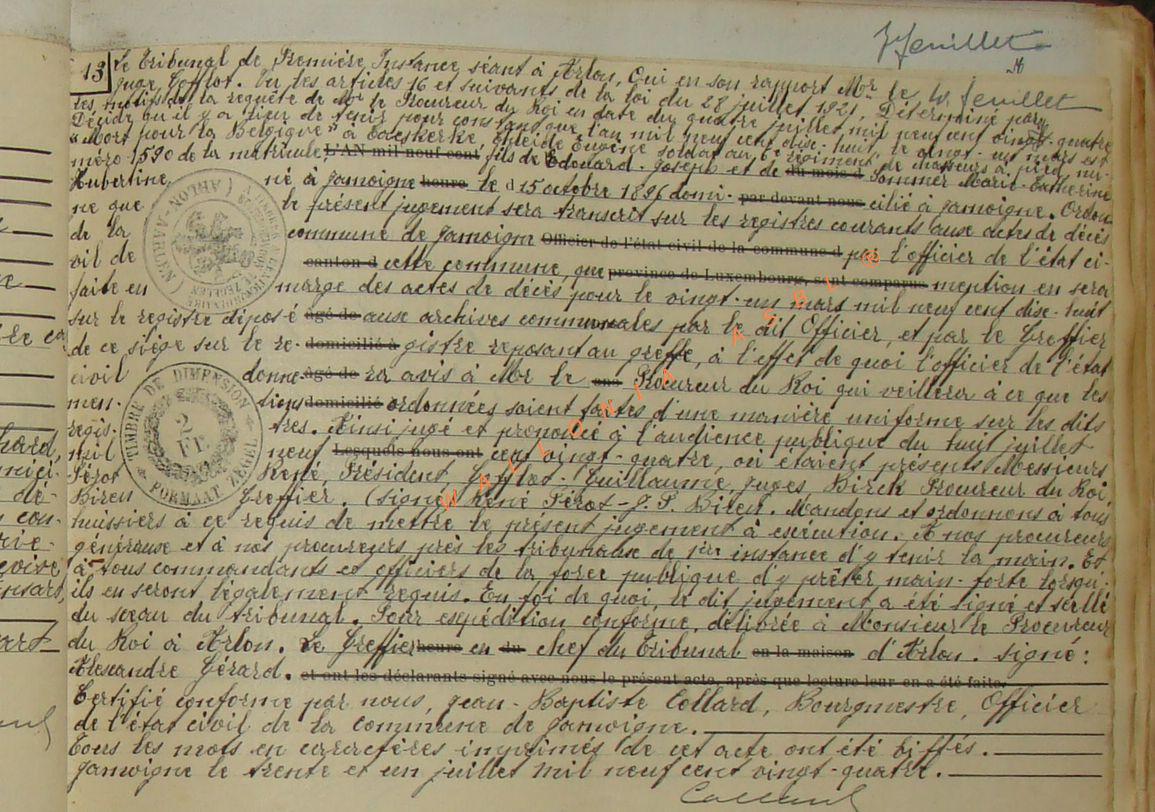 7 feuillet
13 Le Tribunal de Première Instance séant à Arlon, Oui en son rapport Mr le
juge Tofflot. Vu les articles 16 et suivants de la loi du 28 juillet 1921. Déterminé par
feuillet
les motifs de la requête de Mr le Procureur du Roi en date du quatre juillet mil neuf cent vingt-quatre
Décide qu'il y a lieu de tenir pour constant que l'an mil neuf cent dise-huit, le vingt-un mars est
"Mort pour la Belgique" à Eugène soldat au 6e régiment de chasseurs à pied nu-
méro 1590 de la matricule L'AN mil neuf cent fils de Edouard-Joseph et de du mois d Sommer Marie-Catherine
Hubertine, né à Jamoigne heure le d 15 octobre 1896 domi- par devant nous cilié à Jamoigne. Ordon
ne que le présent jugement sera transcrit sur les registres courants ause actes de décès
de la commune de Jamoigne Officier de l'état civil de la commune d par l'officier de l'état ci-
vil de canton d cette commune, que province de Luxembourg, sont comparus mention en sera
faite en marge des actes de décès pour le vingt-un mars mil neuf cent dise-huit
sur le registre déposé âgé de ause archives communales par le dit Officier, et par le Greffier
de ce siège sur le re- domicilié à gistre reposant au greffe, à l'effet de quoi l'officier de l'état
civil donne- âgé de ra avis à Mr le Procureur du Roi qui veillera à ce que les
men- tions domicilié ordonnées soient faites d'une manière uniforme sur les dits
regis- tres. Ainsi jugé et prononcé à l'audience publique du huit juillet
mil neuf Lesquels nous ont cent vingt-quatre, où étaient présents Messieurs
Pérot René, Président, Tofflot-Guillaume, juges Birck Procureur du Roi,
Biren Greffier. (signé) René Pérot - J. P. Biren. Mandons et ordonnons à tous
huissiers à ce requis de mettre le présent jugement à esécution. A nos procureurs
généreuse et à nos procureurs près les tribunause de 1ère instance d'y tenir la main. Et
à tous commandants et officiers de la force publique d'y prêter main-forte lorsqu'-
ils en seront légalement requis. En foi de quoi, le dit jugement a été signé et scellé
du sceau du tribunal. Pour espédition conforme, délibrée à Monsieur le Procureur
du Roi à Arlon. Le Greffier heure en du chef du Tribunal en la maison d'Arlon. signé:
Alesandre Gérard. et ont les déclarants signé avec nous le présent acte, après que lecture leur en a été faite.
Certifié conforme par nous, Jean-Baptiste Collard, Bourgmestre, Officier
de l'état civil de la commune de Jamoigne.
Tous les mots en caractères imprimés de cet acte ont été biffés.
Jamoigne le trente et un juillet mil neuf cent vingt-quatre.
Collard
TIMBRE DE DIMENSION
2 FR.
FORMAAT ZEGEL